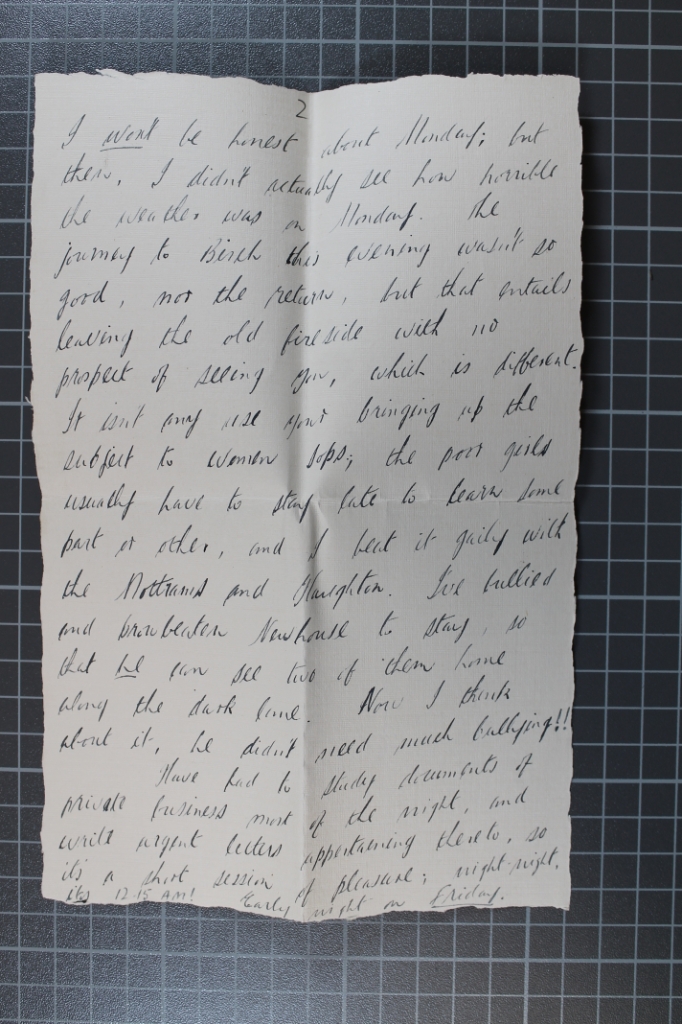 2
I won't be honest about Monday; but
then, I didn't actually see how horrible
the weather was on Monday. The
journey to Birch this evening wasn't so
good, nor the return, but that entails
leaving the old fireside with no
prospect of seeing you, which is different.
It isn't any use your bringing up the
subject to women sops; the poor girls
usually have to stay late to learn some
part or other, and I beat it gaily with
the Mottrams and Haughton. I've bullied
and browbeaten Newhouse to stay, so
that he can see two of them home
along the dark lane. Now I think
about it, he didn't need much bullying!!
Have had to study documents of
private business most of the night, and
write urgent letters appertaining thereto, so
it's a short session of pleasure; night-night.
its 12-15 AM! Early night on Friday.